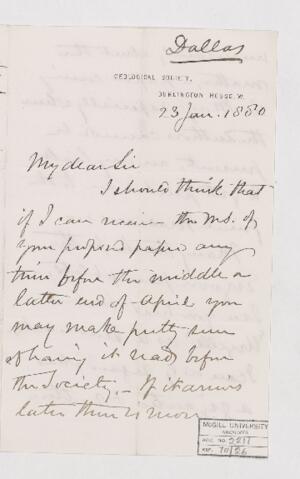 Dallas
GEOLOGICAL SOCIETY,
BURLINGTON HOUSE, W.
23 Jan. 1880
My dear Sir
I should think that
if I can receive the M.S. of
your proposed paper any
time before the middle or
latter end of April you
may make pretty sure
of having it read before
the Society. If it arrives
later there is more
MCGILL UNIVERSITY
ARCHIVES
ACC. NO. 2211
REF.